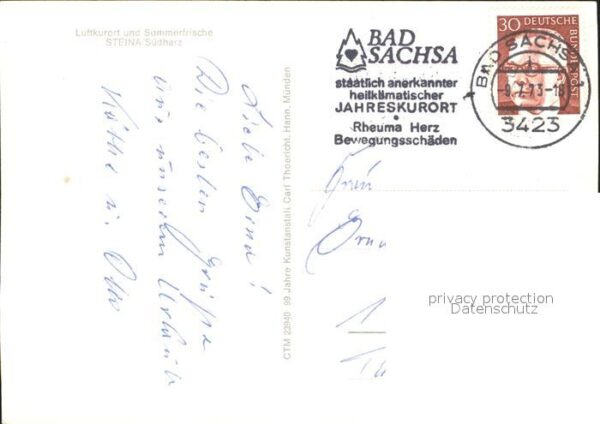 Luftkurort und Sommerfrische
STEINA/Südharz
Liebe Erna!
Die besten Grüße
aus unserem Urlaub
Käthe u. Otto
CTM 22940 99 Jahre Kunstanstalt Carl Thoericht, Hann. Münden
BAD
SACHSA
staatlich anerkannter
heilklimatischer
JAHRESKURORT
Rheuma Herz
Bewegungsschäden
30 DEUTSCHE
BUNDESPOST
BAD SACHSA
-9.7.73-18
3423
1
privacy protection
Datenschutz